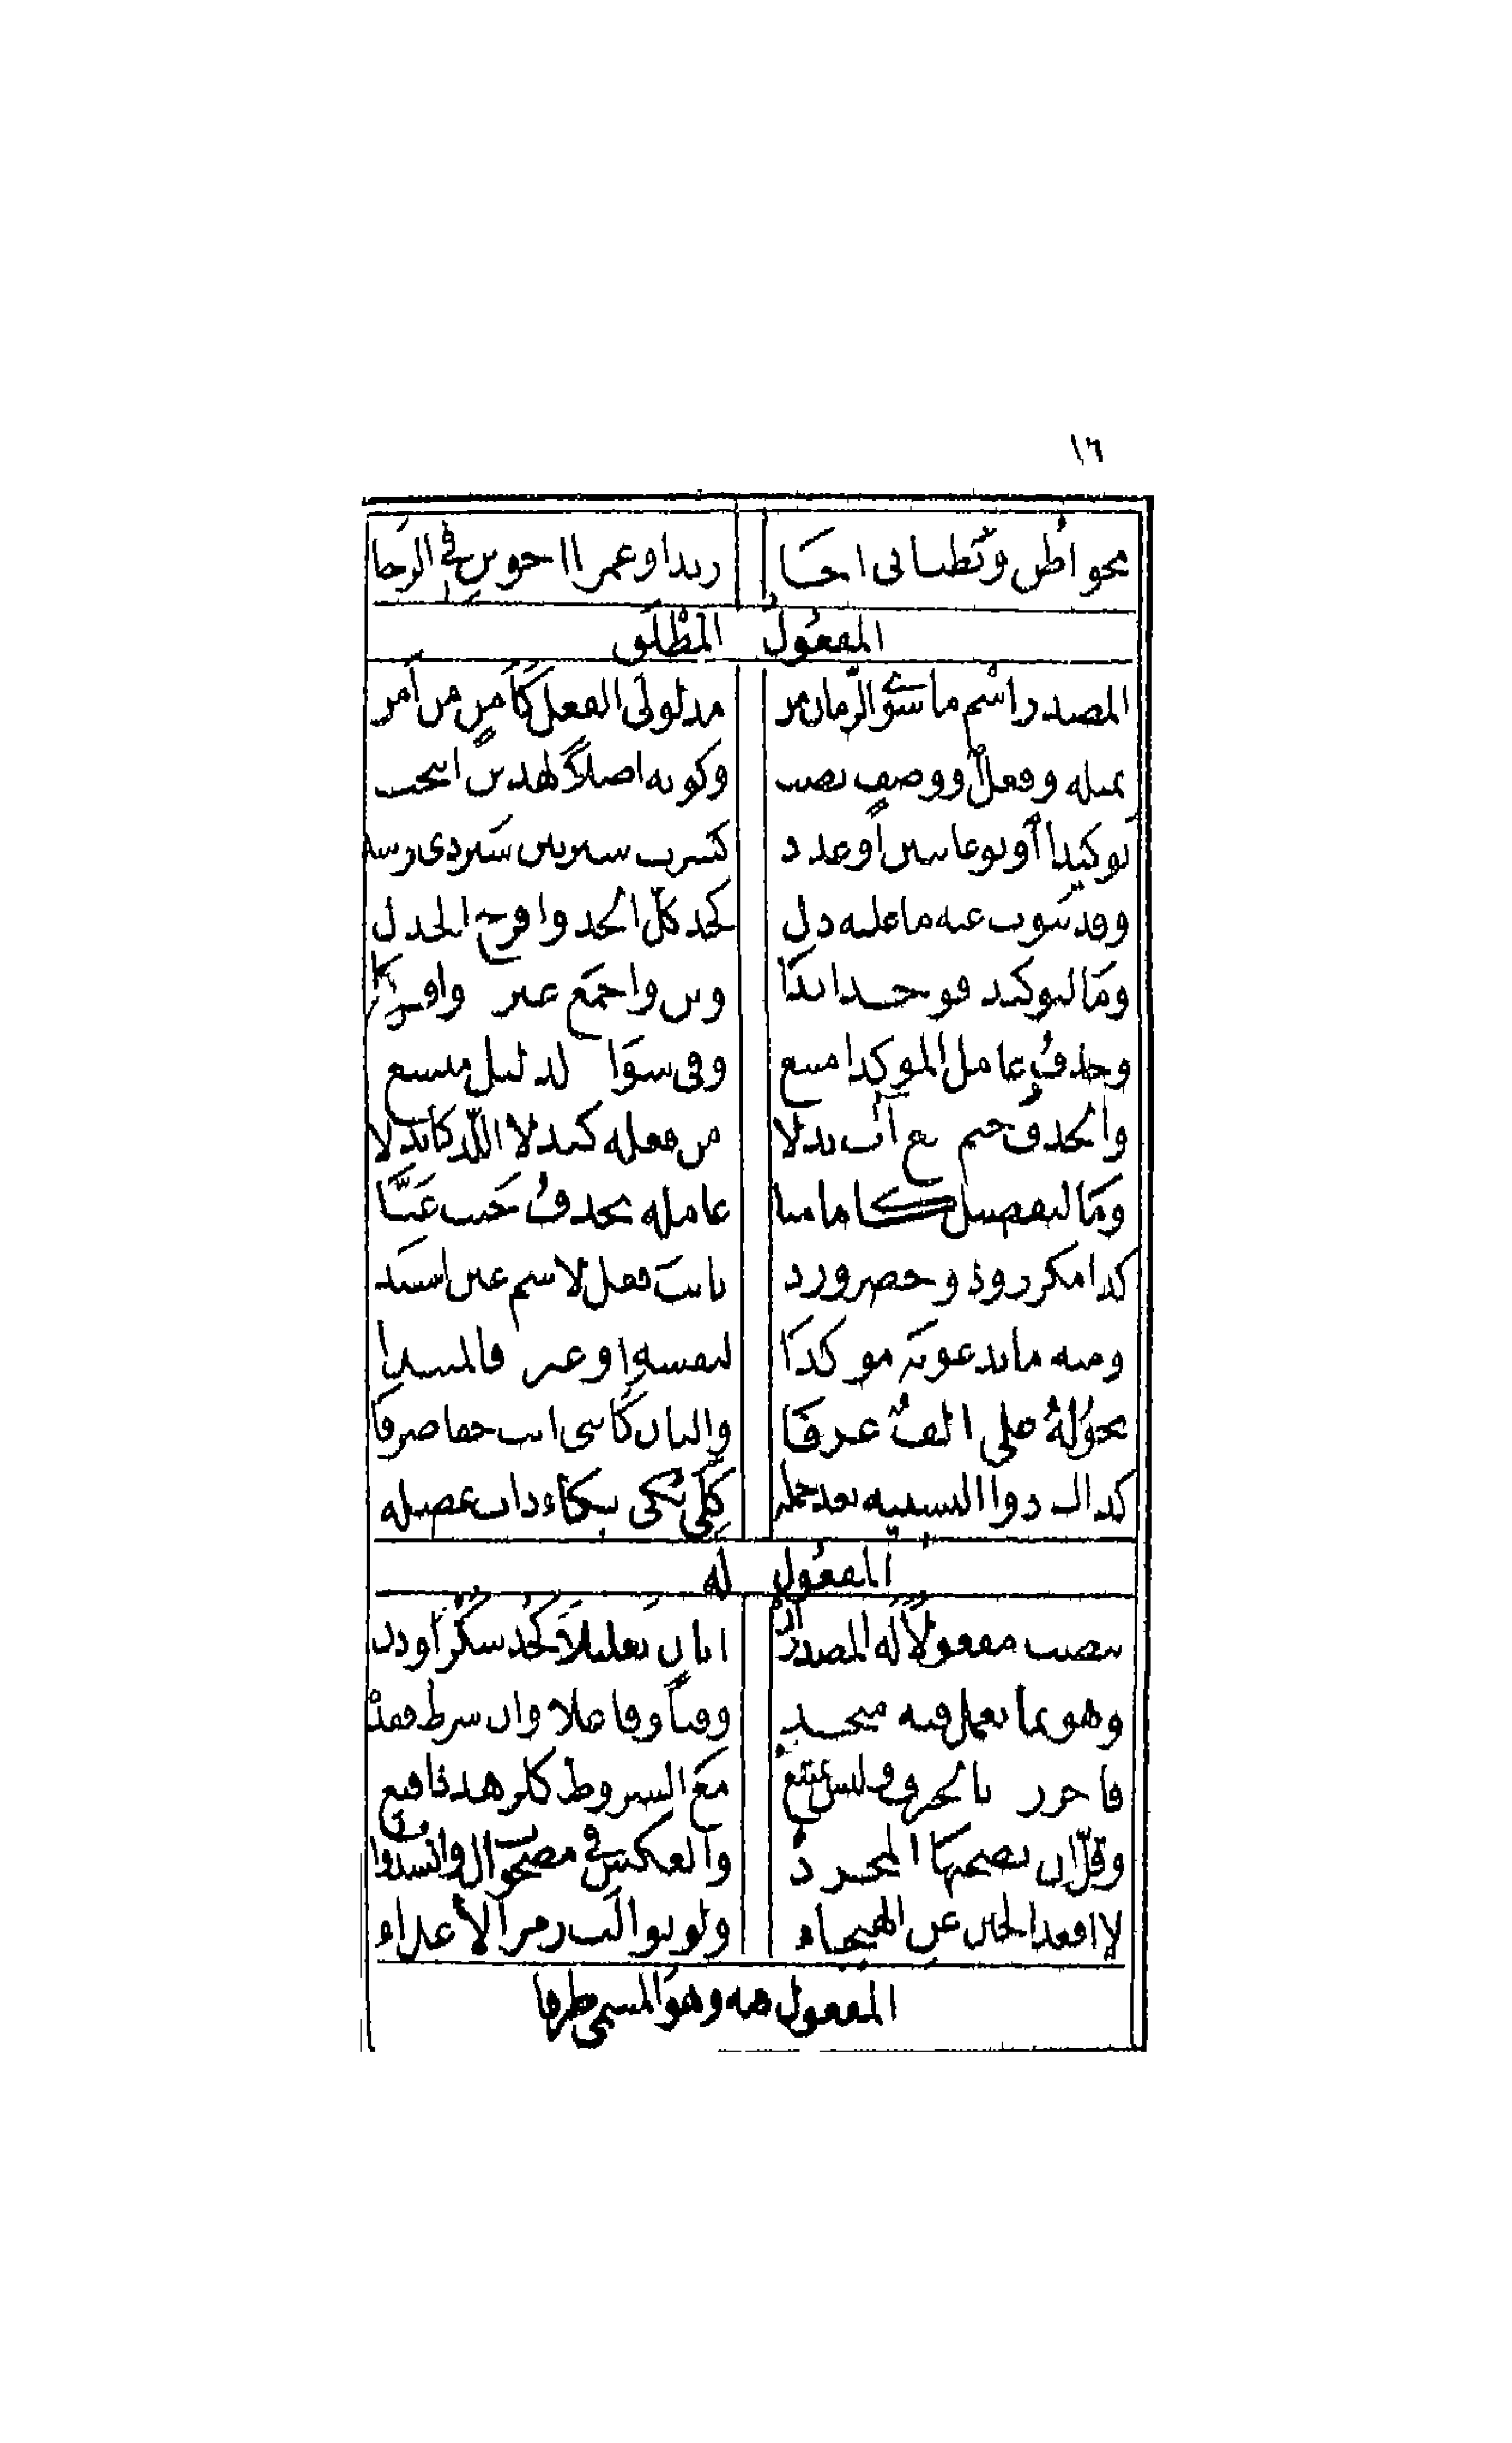 ١٦
نحو اظن ويظناني اخا زيدا وعمرا اخوين في الرخا
المفعول المطلق
المصدر اسم ما سوى الزمان من مدلولي الفعل كأمن من أمن
بمثله وفعل ووصف نصب وكونه اصلا لهذين انتخب
توكيدا أو نوعا يبين أو عدد كسرت سيرتين سير ذي رشد
وقد ينوب عنه ما عليه دل كجد كل الجد وافرح الجذل
وما لتوكيد فوحد ابدا وثن واجمع غيره وافردا
وحذف عامل المؤكد امتنع وفي سواه لدليل متسع
والحذف حتم مع آت بدلا من فعله كندلا اللذ كاندلا
وما لتفصيل كاما منا عامله يحذف حيث عنا
كذا مكرر وذو حصر ورد نايب فعل لاسم عين استند
ومنه ما يدعونه موكدا لنفسه او غيره فالمبتدا
نحو له علي الف عرفا والثان كابني انت حقا صرفا
كذاك ذو التشبيه بعد جمله كلي بكى بكاء ذات عضله
المفعول له
ينصب مفعولا له المصدر إن ابان تعليلا كجد شكرا ودن
وهو بما يعمل فيه متحد وقتا وفاعلا وان شرط فقد
فاجرر بالحرف وليس يمتنع مع الشروط كلزهد ذا قنع
وقل ان يصحبها المجرد والعكس في مصحوب ال وانشدوا
لا اقعد الجبن عن الهيجاء ولو توالت زمر الأعداء
المفعول فيه وهو المسمى ظرفا